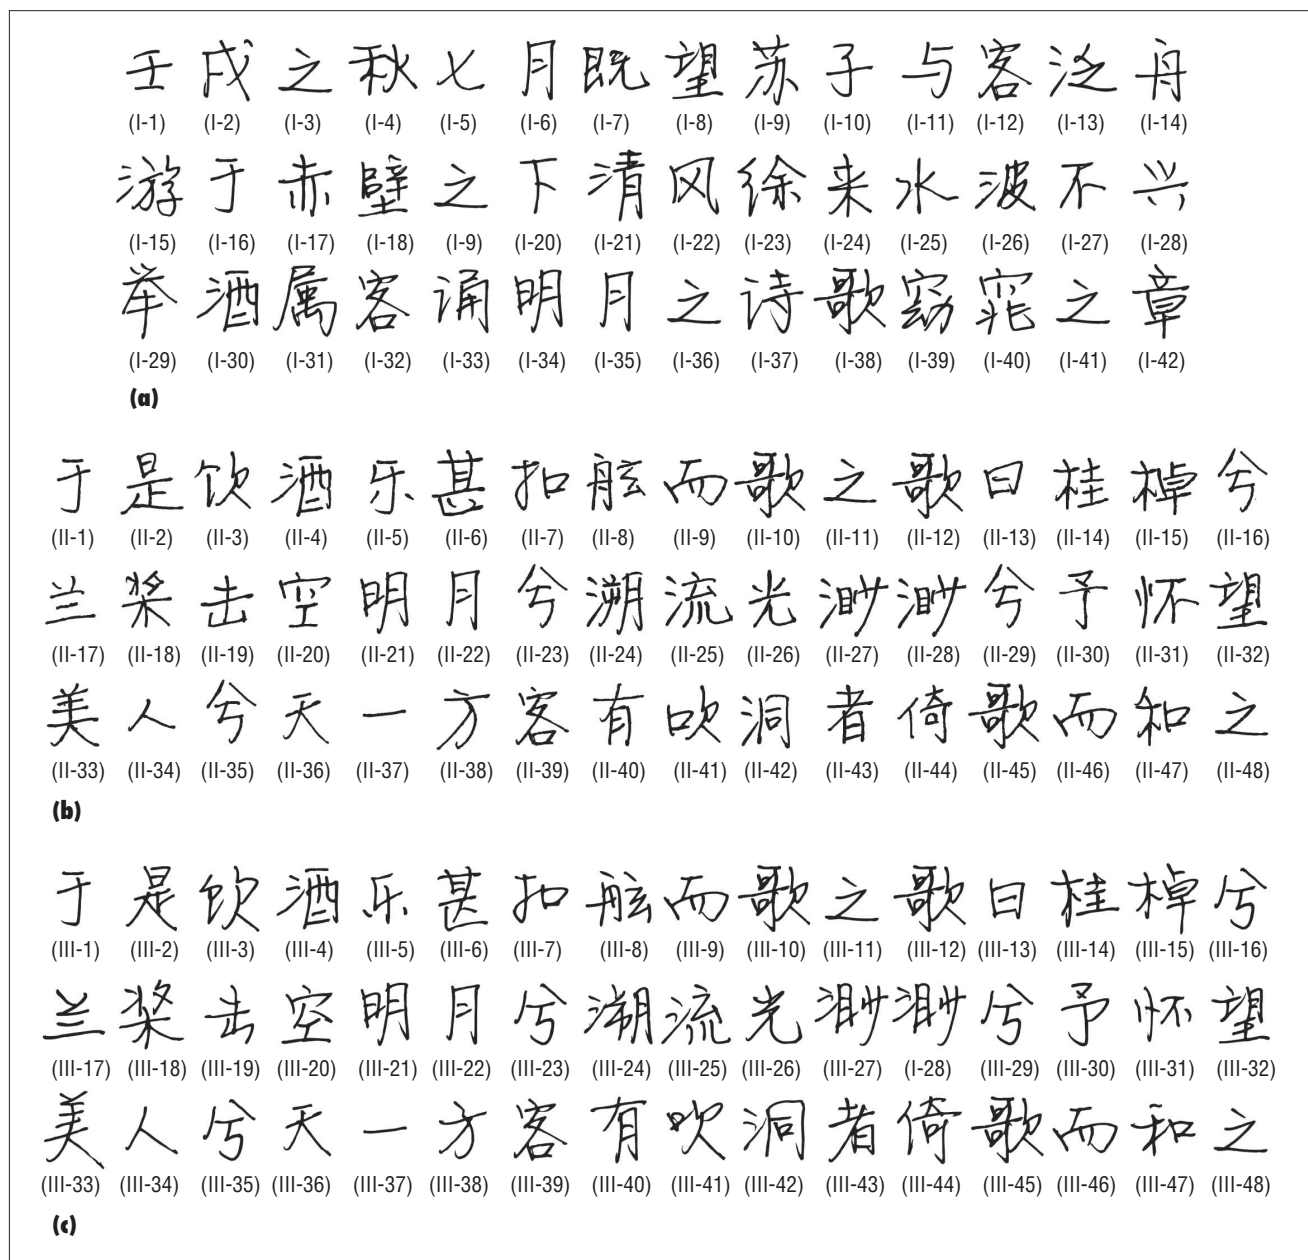 壬戌之秋七月既望苏子与客泛舟
(I-1) (I-2) (I-3) (I-4) (I-5) (I-6) (I-7) (I-8) (I-9) (I-10) (I-11) (I-12) (I-13) (I-14)
游于赤壁之下清风徐来水波不兴
(I-15) (I-16) (I-17) (I-18) (I-9) (I-20) (I-21) (I-22) (I-23) (I-24) (I-25) (I-26) (I-27) (I-28)
举酒属客诵明月之诗歌窈窕之章
(I-29) (I-30) (I-31) (I-32) (I-33) (I-34) (I-35) (I-36) (I-37) (I-38) (I-39) (I-40) (I-41) (I-42)
(a)
于是饮酒乐甚扣舷而歌之歌曰桂棹兮
(II-1) (II-2) (II-3) (II-4) (II-5) (II-6) (II-7) (II-8) (II-9) (II-10) (II-11) (II-12) (II-13) (II-14) (II-15) (II-16)
兰桨击空明月兮溯流光渺渺兮予怀望
(II-17) (II-18) (II-19) (II-20) (II-21) (II-22) (II-23) (II-24) (II-25) (II-26) (II-27) (II-28) (II-29) (II-30) (II-31) (II-32)
美人兮天一方客有吹洞者倚歌而和之
(II-33) (II-34) (II-35) (II-36) (II-37) (II-38) (II-39) (II-40) (II-41) (II-42) (II-43) (II-44) (II-45) (II-46) (II-47) (II-48)
(b)
于是饮酒乐甚扣舷而歌之歌曰桂棹兮
(III-1) (III-2) (III-3) (III-4) (III-5) (III-6) (III-7) (III-8) (III-9) (III-10) (III-11) (III-12) (III-13) (III-14) (III-15) (III-16)
兰桨击空明月兮溯流光渺渺兮予怀望
(III-17) (III-18) (III-19) (III-20) (III-21) (III-22) (III-23) (III-24) (III-25) (III-26) (III-27) (I-28) (III-29) (III-30) (III-31) (III-32)
美人兮天一方客有吹洞者倚歌而和之
(III-33) (III-34) (III-35) (III-36) (III-37) (III-38) (III-39) (III-40) (III-41) (III-42) (III-43) (III-44) (III-45) (III-46) (III-47) (III-48)
(c)